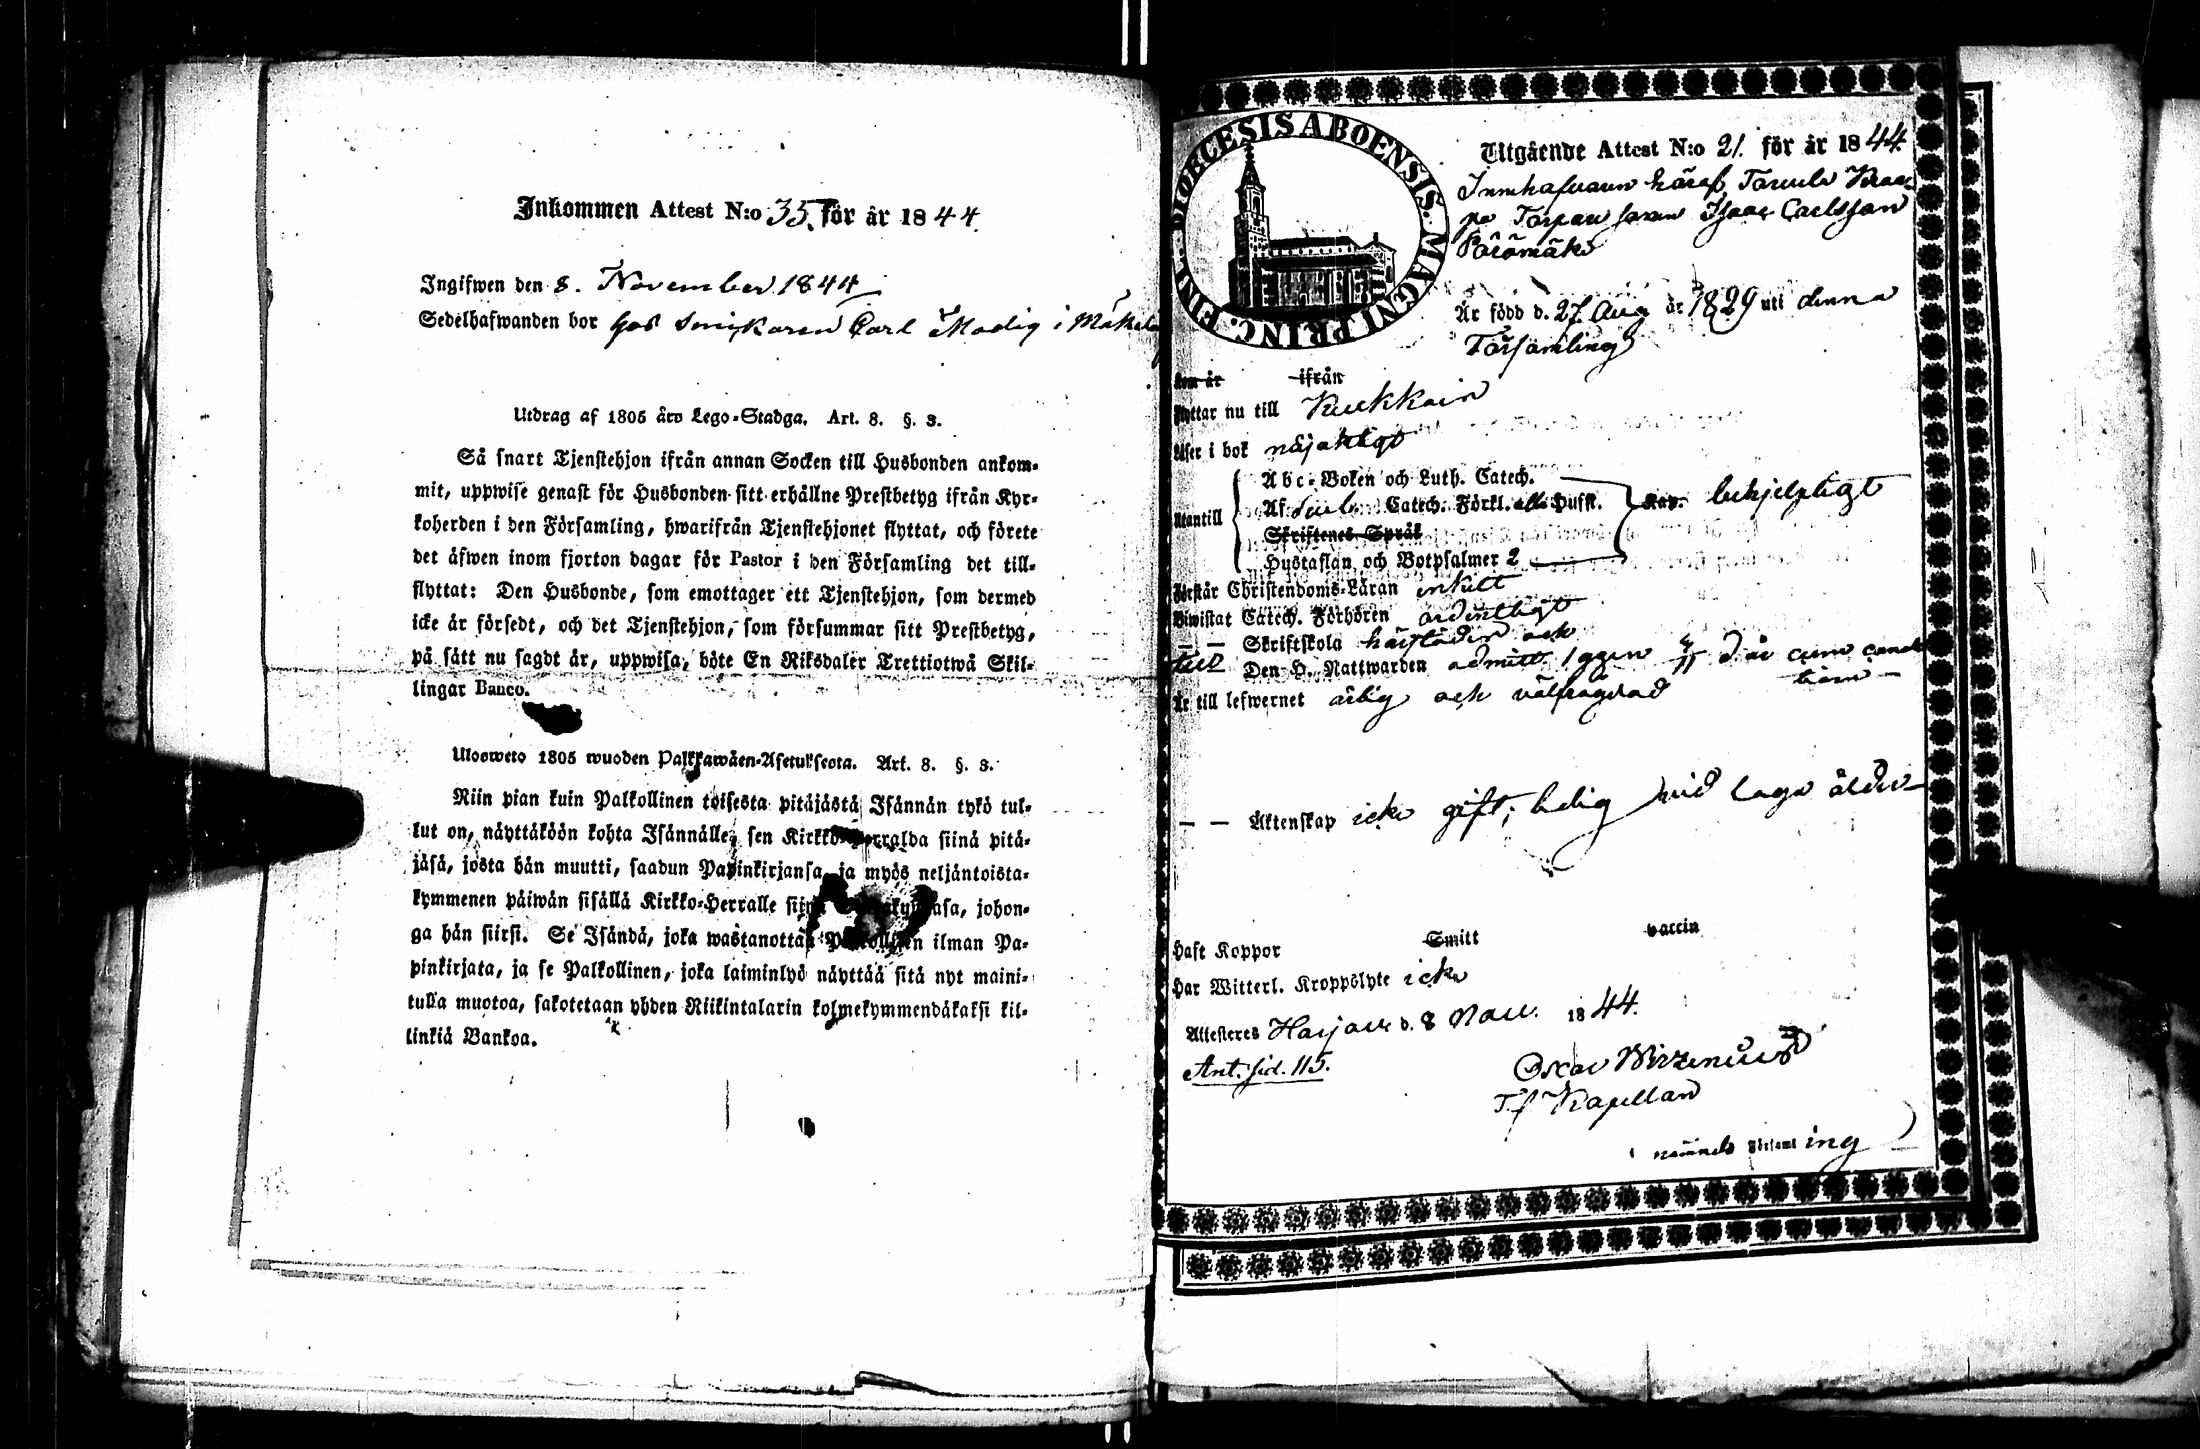 Inkommen Attest N:o 35. för år 1844
Ingifwen den 8. November 1844
Sedelhafwanden bor hos Carl i
Utdrag af 1805 års Lego-Stadga. Art. 8. §. 3.
Så snart Tjenstehjon ifrån annan Socken till Husbonden ankom-
mit, uppwise genast för Husbonden sitt erhållne Prestbetyg ifrån Kyr-
koherden i den Församling, hwarifrån Tjenstehjonet flyttat, och förete
det äfwen inom fjorton dagar för Pastor i den Församling det till-
flyttat: Den Husbonde, som emottager ett Tjenstehjon, som dermed
icke är försedt, och det Tjenstehjon, som försummar sitt Prestbetyg,
på sätt nu sagdt är, uppwisa, böte En Riksdaler Trettiotwå Skil-
lingar Banco.
Ulosweto 1805 wuoden Palkkawäen-Asetuksesta. Art. 8. §. 3.
Niin pian kuin Palkollinen toisesta pitäjästä Isännän tykö tul-
lut on, näyttäköön kohta Isännälle, sen Kirkko-Herralda siinä pitä-
jäsä, josta hän muutti, saadun Papinkirjansa, ja myös neljäntoista-
kymmenen päiwän sisällä Kirkko-Herralle johon-
ga hän siirsi. Se Isändä, joka wastanottaa Palkollisen ilman Pa-
pinkirjata, ja se Palkollinen, joka laiminlyö näyttää sitä nyt maini-
tulla muotoa, sakotetaan yhden Riikintalarin kolmekymmendäkaksi kil-
linkiä Bankoa.
DIOECESIS ABOENSIS. MAGNI PRINC. FINL.
Utgående Attest N:o 21. för år 1844
Innehafvaren häraf,
Torpare sonen Isaac Carlsson
Är född d. 27 Aug år 1829 uti denna
Församling
kom år ifrån
flyttar nu till
Läser i bok nöjaktigt
Utantill
Abc-Boken och Luth. Catech.
Af Catech. Förkl. Husst. Kap. behjelpligt
Skriftenes Språk
Hustaflan och Botpsalmer 2
Förstår Christendoms-Läran enkelt
Biwistat Catech. Förhören ordentligt
— — Skriftskola och
till Den H. Nattwarden
Är till lefwernet ärlig och välfrägdad
— — Äktenskap icke gift; ledig vid laga ålder
Haft Koppor Smitt vaccin
Har Witterl. Kroppslyte icke
Attesteres d. 8 Nov. 1844.
Ant. sid. 115.
Oscar Wirzenius
Tf Kapellan
Församling